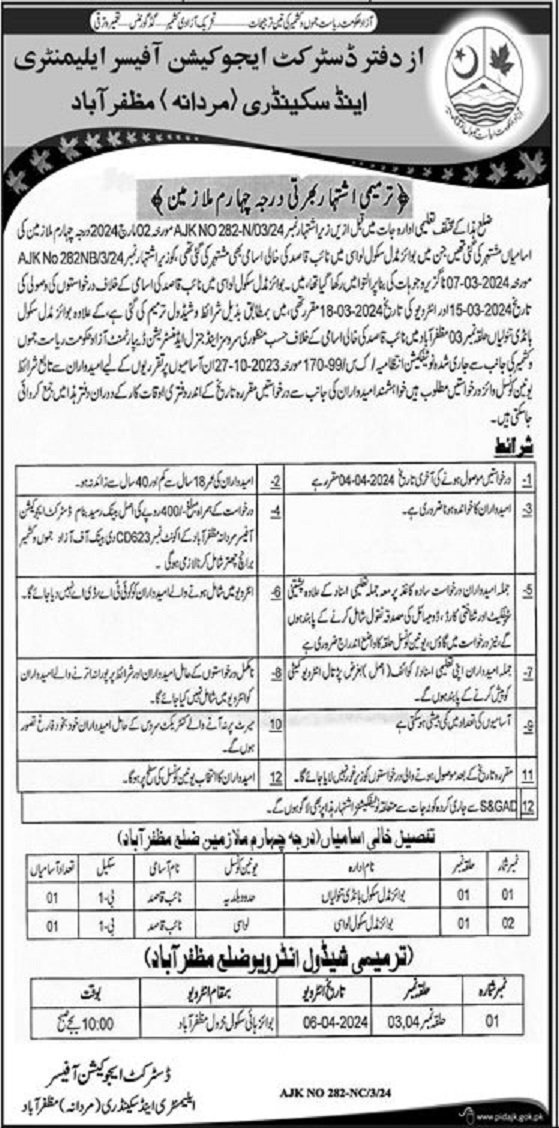 آزاد حکومت ریاست جموں و کشمیر کی تین ترجیحات ـــ تحریک آزادی کشمیر، گڈ گورننس، تعمیر و ترقی
از دفتر ڈسٹرکٹ ایجوکیشن آفیسر ایلیمنٹری
اینڈ سیکنڈری (مردانہ) مظفرآباد
﴿ ترمیمی اشتہار بھرتی درجہ چہارم ملازمین ﴾
ضلع ہذا کے مختلف تعلیمی ادارہ جات میں قبل ازیں زیر اشتہار نمبر AJK NO 282-N/03/24 مورخہ 02 مارچ 2024 درجہ چہارم ملازمین کی
اسامیاں مشتہر کی گئی تھیں جن میں بوائز مڈل سکول لواسی میں نائب قاصد کی خالی اسامی بھی مشتہر کی گئی تھی، کو زیر اشتہار نمبر AJK No 282NB/3/24
مورخہ 07-03-2024 ناگزیر وجوہات کی بناء پر التوا میں رکھا گیا تھا، میں۔ بوائز مڈل سکول لواسی میں نائب قاصد کی اسامی کے خلاف درخواستوں کی وصولی کی
تاریخ 15-03-2024 اور انٹرویو کی تاریخ 18-03-2024 مقرر تھی، میں بمطابق بذیل شرائط و شیڈول ترمیم کی گئی ہے، کے علاوہ بوائز مڈل سکول
بانڈی تولیاں حلقہ نمبر 03 مظفرآباد میں نائب قاصد کی خالی اسامی کے خلاف حسب منظوری سروسز اینڈ جنرل ایڈمنسٹریشن ڈیپارٹمنٹ آزاد حکومت ریاست جموں
و کشمیر کی جانب سے جاری شدہ نوٹیفکیشن انتظامیہ 170-99/ مورخہ 27-10-2023 ان آسامیوں پر تقرریوں کے لیے امیدواران سے تابع شرائط
یونین کونسل وائز درخواستیں مطلوب ہیں خواہشمند امیدواران کی جانب سے درخواستیں مقررہ تاریخ کے اندر دفتری اوقات کار کے دوران دفتر ہذا میں جمع کروائی
جا سکتی ہیں۔
شرائط
1- درخواستیں موصول ہونے کی آخری تاریخ 04-04-2024 مقرر ہے
2- امیدواران کی عمر 18 سال سے کم اور 40 سال سے زائد نہ ہو۔
3- امیدواران کا خواندہ ہونا ضروری ہے۔
4- درخواست کے ہمراہ مبلغ -/400 روپے کی اصل بینک رسید بنام ڈسٹرکٹ ایجوکیشن
آفیسر مردانہ مظفرآباد کے اکاؤنٹ نمبر CD623 دی بینک آف آزاد جموں و کشمیر
برانچ چھتر شامل کرنا لازمی ہوگی۔
5- جملہ امیدواران درخواست سادہ کاغذ پر معہ جملہ تعلیمی اسناد کے علاوہ پشتنی
سرٹیفکیٹ اور شناختی کارڈ، ڈومیسائل کی مصدقہ نقول شامل کرنے کے پابند ہوں
گے، نیز درخواست میں گاؤں، یونین کونسل حلقہ کا واضح اندراج ضروری ہے
6- انٹرویو میں شامل ہونے والے امیدواران کو کوئی ٹی اے ڈی اے نہیں دیا جائے گا۔
7- جملہ امیدواران اپنی تعلیمی اسناد/کوائف (اصل) بغرض پڑتال انٹرویو کمیٹی
کو پیش کرنے کے پابند ہوں گے۔
8- نامکمل درخواستوں کے حامل امیدواران اور شرائط پر پورا نہ اترنے والے امیدواران
کو انٹرویو میں شامل نہیں کیا جائے گا۔
9- آسامیوں کی تعداد میں کمی بیشی ہو سکتی ہے
10 میرٹ پر نہ آنے والے کنٹریکٹ سروس کے حامل امیدواران خود بخود فارغ تصور
ہوں گے۔
11 مقررہ تاریخ کے بعد موصول ہونے والی درخواستوں کو زیر غور نہیں لایا جائے گا۔
12 امیدواران کا انتخاب یونین کونسل کی سطح پر ہوگا۔
12 S&GAD سے جاری کردہ کوٹہ جات سے متعلقہ نوٹیفکیشنز اشتہار ہذا پر بھی لاگو ہوں گے۔
تفصیل خالی اسامیاں (درجہ چہارم ملازمین ضلع مظفرآباد)
نمبر شمار حلقہ نمبر نام ادارہ یونین کونسل نام آسامی سکیل تعداد آسامیاں
01 01 بوائز مڈل سکول بانڈی تولیاں حدود بلدیہ نائب قاصد بی-1 01
02 01 بوائز مڈل سکول لواسی لواسی نائب قاصد بی-1 01
(ترمیمی شیڈول انٹرویو ضلع مظفرآباد)
نمبر شمارہ حلقہ نمبر تاریخ انٹرویو بمقام انٹرویو بوقت
01 حلقہ نمبر 03,04 06-04-2024 بوائز ہائی سکول نڑول مظفرآباد 10:00 بجے صبح
ڈسٹرکٹ ایجوکیشن آفیسر
ایلیمنٹری اینڈ سیکنڈری (مردانہ) مظفرآباد
AJK NO 282-NC/3/24
www.pidajk.gok.pk